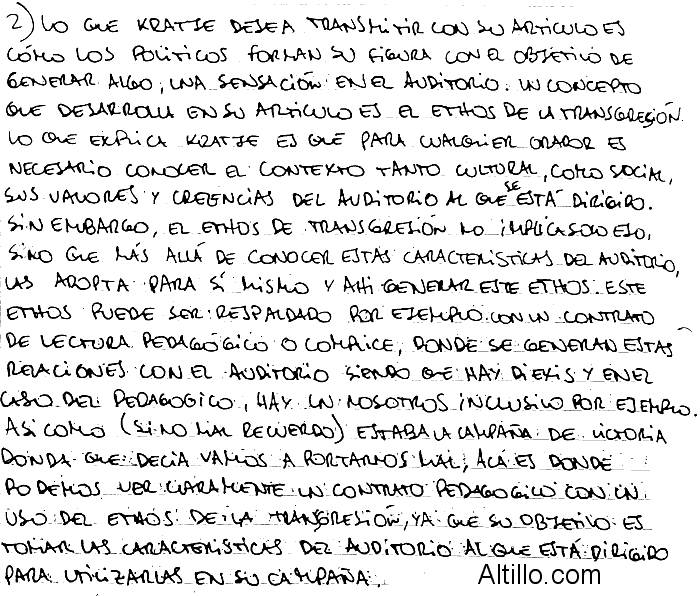 2) LO QUE KRATJE DESEA TRANSMITIR CON SU ARTICULO ES
CÓMO LOS POLITICOS FORMAN SU FIGURA CON EL OBJETIVO DE
GENERAR ALGO, UNA SENSACIÓN EN EL AUDITORIO. UN CONCEPTO
QUE DESARROLLA EN SU ARTICULO ES EL ETHOS DE LA TRANSGRESIÓN.
LO QUE EXPLICA KRATJE ES QUE PARA CUALQUIER ORADOR ES
NECESARIO CONOCER EL CONTEXTO TANTO CULTURAL, COMO SOCIAL,
SUS VALORES Y CREENCIAS DEL AUDITORIO AL QUE SE ESTÁ DIRIGIDO.
SIN EMBARGO, EL ETHOS DE TRANSGRESIÓN NO IMPLICA SOLO ESO,
SINO QUE MÁS ALLÁ DE CONOCER ESTAS CARACTERISTICAS DEL AUDITORIO,
LAS ADOPTA PARA SÍ MISMO Y AHI GENERAR ESTE ETHOS. ESTE
ETHOS PUEDE SER RESPALDADO POR EJEMPLO CON UN CONTRATO
DE LECTURA PEDAGÓGICO O COMPLICE, DONDE SE GENERAN ESTAS
RELACIONES CON EL AUDITORIO SIENDO QUE HAY DIEXIS Y EN EL
CASO DEL PEDAGOGICO, HAY UN NOSOTROS INCLUSIVO POR EJEMPLO.
ASI COMO (SI NO MAL RECUERDO) ESTABA LA CAMPAÑA DE VICTORIA
DONDA QUE DECIA VAMOS A PORTARNOS MAL, ACÁ ES DONDE
PODEMOS VER CLARAMENTE UN CONTRATO PEDAGOGICO CON UN
USO DEL ETHOS DE LA TRANSGRESIÓN, YA QUE SU OBJETIVO ES
TOMAR LAS CARACTERISTICAS DEL AUDITORIO AL QUE ESTÁ DIRIGIDO
PARA UTILIZARLAS EN SU CAMPAÑA.
Altillo.com